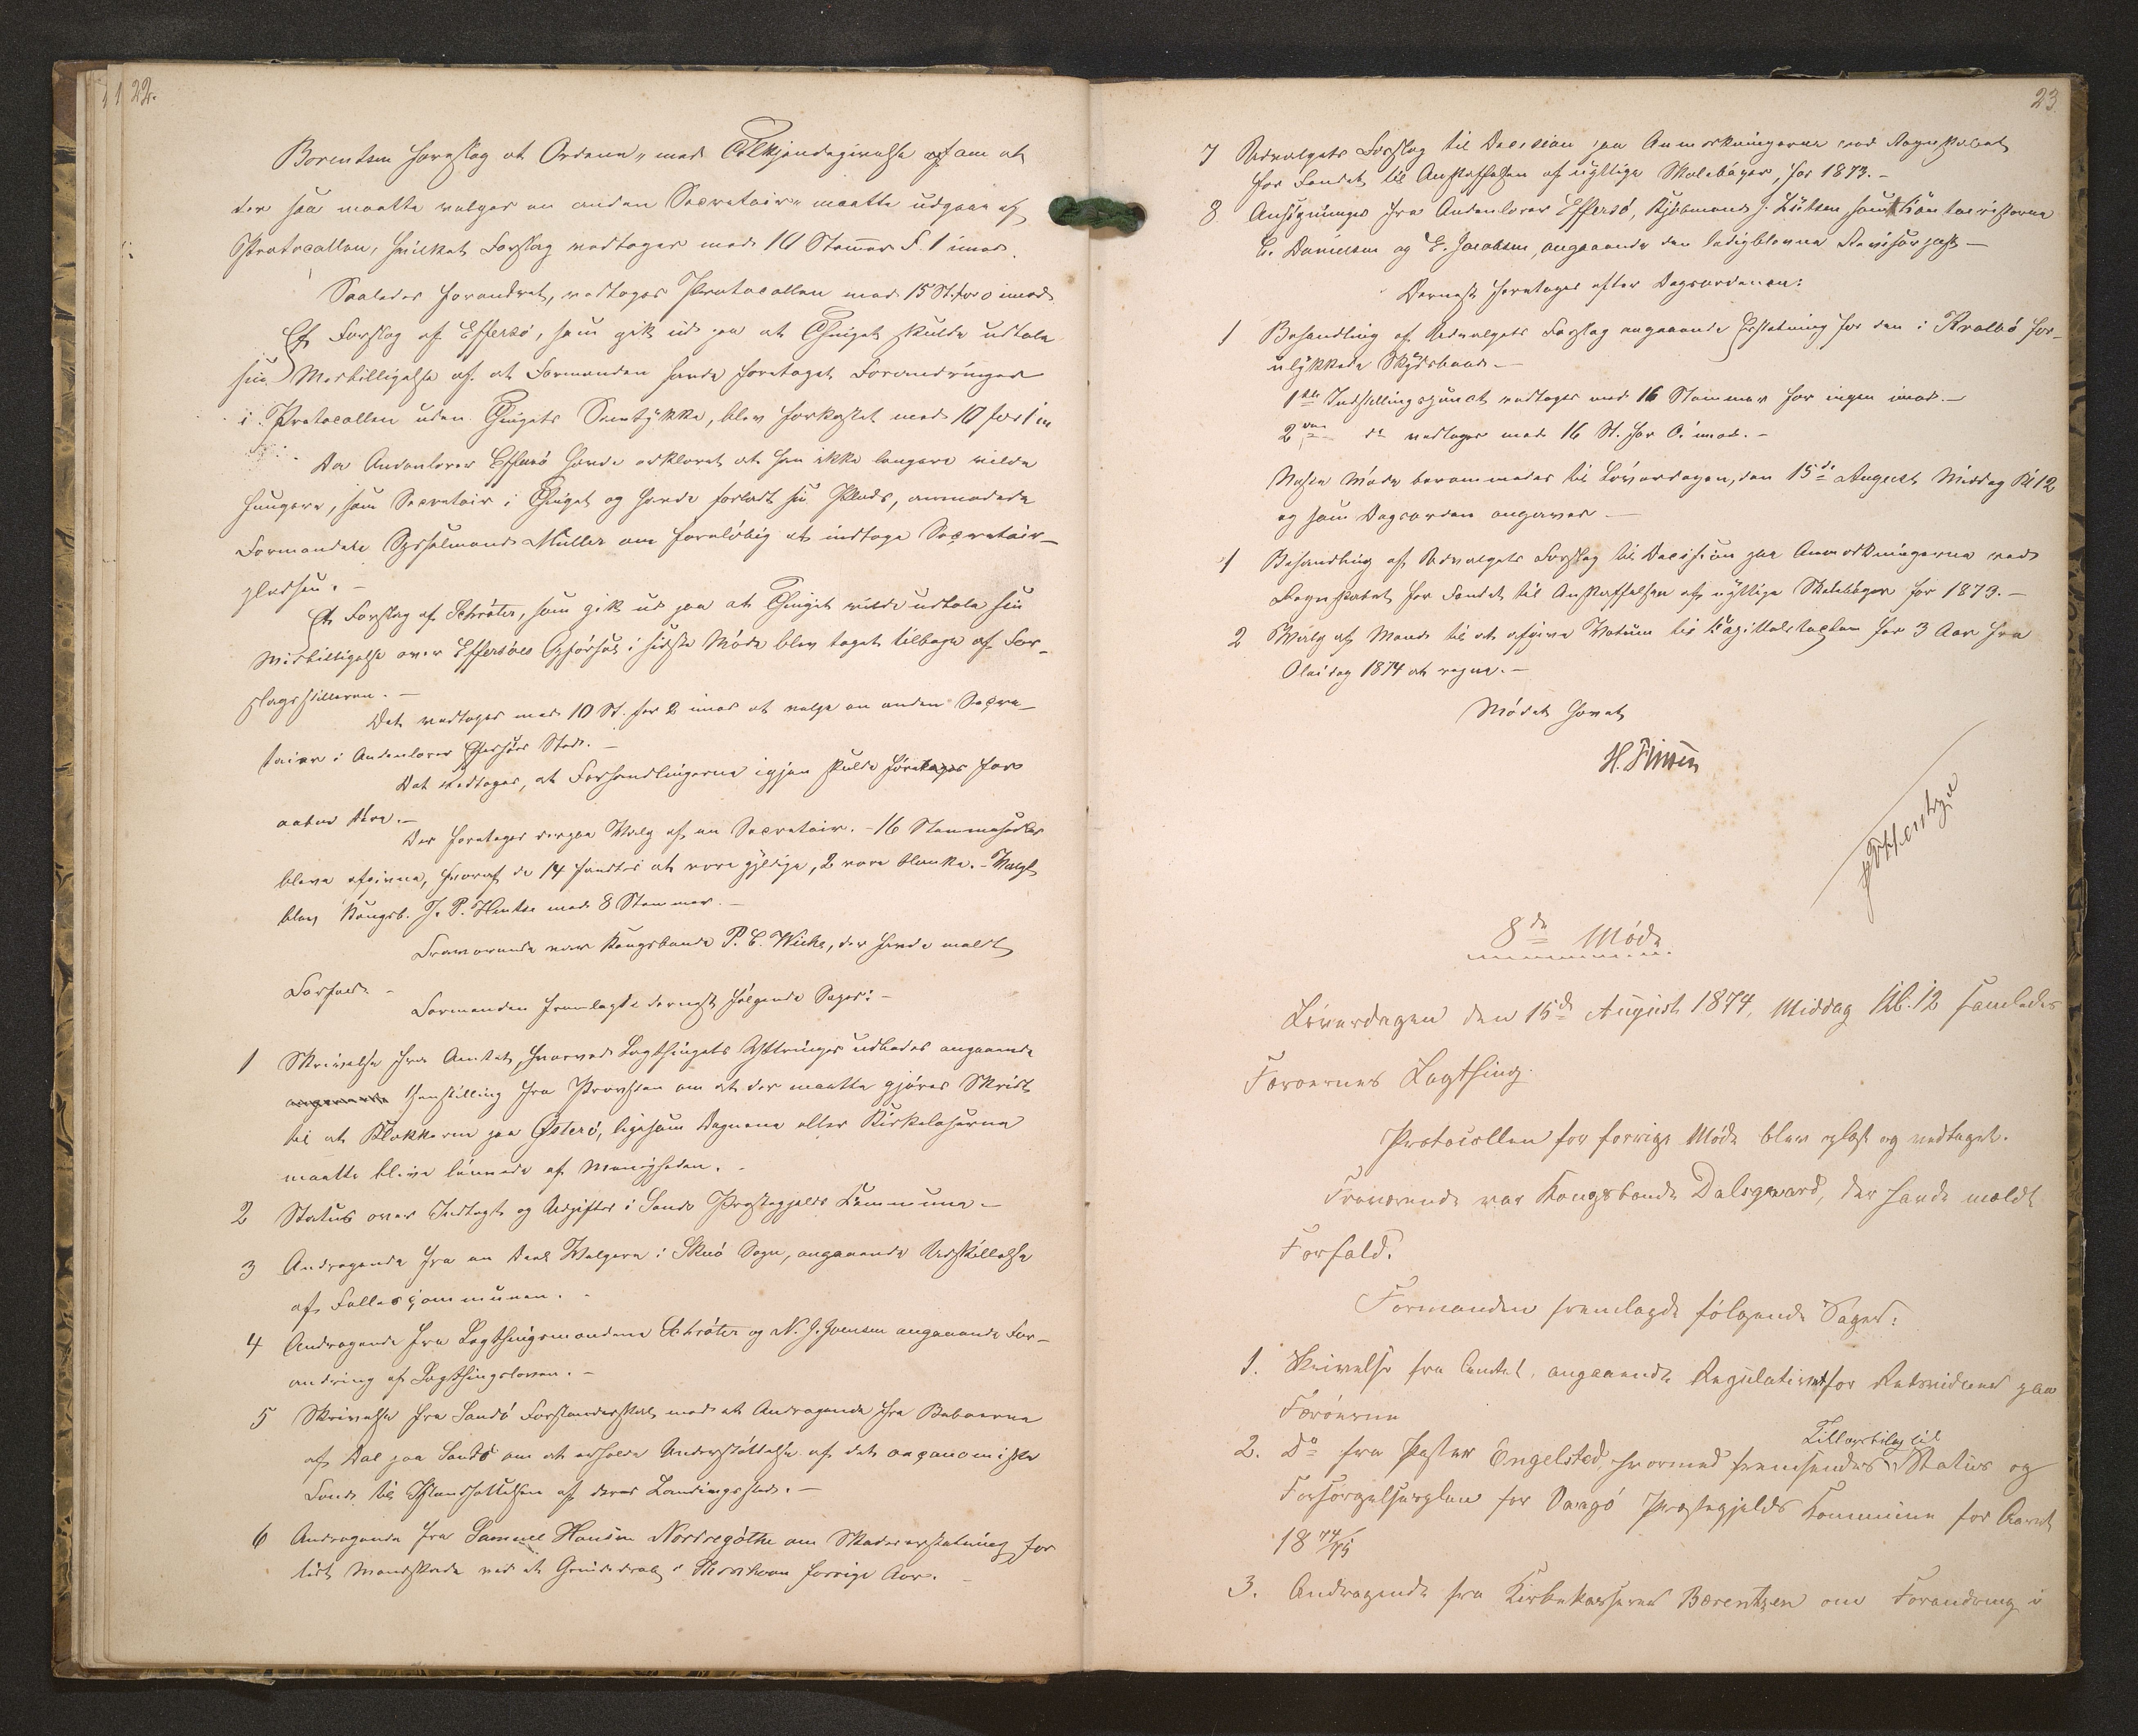 22.
Børentsen foreslog at Ordene "med Tilkjendegivelse af om at
der saa maatte vælges en anden Secretair" maatte udgaae af
Protocollen, hvilket Forslag vedtoges med 10 Stemmer f. 1 imod.
Saaledes forandret, vedtoges Protocollen med 15 St. for 0 imod.
Et Forslag af Effersø, som gik ud paa at Thinget skulde udtale
sin Misbilligelse af at Formanden havde foretaget Forandringer
i Protocollen uden Thingets Samtykke, blev forkastet med 10 for 1 
Da Landinlover Effersø havde erklæret at han ikke længere vilde
fungere, som Secretair i Thinget og havde forladt sin Plads, anmodede
Formanden Sysselmand Müller om foreløbig at indtage Secretair-
pladsen. -
Et Forslag af Schrøter, som gik ud paa at Thinget vilde udtale sin
Misbilligelse over Effersøes Opførsel i sidste Møde blev taget tilbage af For-
slagsstilleren. -
Det vedtoges med 10 St. for 2 imod at vælge en anden Secre-
tair i Effersøes Sted. -
Det vedtoges, at Forhandlingerne igjen skulde foretages for
aabne Døre. -
Der foretoges derpaa Valg af en Secretair. - 16 Stemmesedler
bleve afgivne, hvoraf de 14 fandtes at være gyldige, 2 vare blanke. - Valgt
blev Kongsb. J. P. Hentze med 8 Stemmer. -
Fraværende var Kongsbonde P. C. Wiehe, der havde meldt
Forfald. -
Formanden fremlagde dernæst følgende Sager: -
1 Skrivelse fra Amtet, hvorved Lagthingets Yttringer udbedes angaaende
Henstilling fra Provsten om at der maatte gjøres Skridt
til at Klokkerne paa Østerø, ligesom Degnene eller Kirkelæserne
maatte blive lønnede af Menigheden. -
2 Status over Indtægt og Udgifter i Sandø Præstegjelds Commune. -
3 Andragende fra en Deel Vælgere i Skuø Sogn, angaaende Udskillelse
af Fællescommunen. -
4 Andragende fra Lagthingsmændene Schrøter og N. J. Joensen angaaende For-
andring af Lagthingsloven. -
5 Skrivelse fra Sandø Forstanderskab med et Andragende fra Beboerne
af Dal paa Sandø om at erholde Understøttelse af det oeconomiske
Fond til Istandsættelsen af deres Landingssted. -
6 Andragende fra Samuel Hansen Nordregøthe om Skadeserstatning for
lidt Mandskade ved et Grindedrab i Thorshavn forrige Aar. -
23
7 Udvalgets Forslag til Decision paa Anmærkningerne ved Regnskabet
for Fondet til Anskaffelsen af nyttige Skolebøger, for 1873. -
8 Ansøgninger fra Effersø, Kjøbmand J. Lützen samt Contoiristerne
C. Danielsen og E. Jacobsen, angaaende den ledigblevne Revisorpost -
Dernæst foretoges efter Dagsordenen:
1 Behandling af Udvalgets Forslag angaaende Erstatning for den i Kvalbø for-
ulykkede Skydsbaad. -
1ste Indstillingspunct vedtoges med 16 Stemmer for ingen imod. -
2den do vedtoges med 16 St. for 0 imod. -
Næste Møde berammedes til Løverdagen, den 15de August Middag Kl 12
og som Dagsorden angaves -
1 Behandling af Udvalgets Forslag til Decision paa Anmærkningerne ved
Regnskabet for Fondet til Anskaffelsen af nyttige Skolebøger for 1873. -
2 Valg af Mænd til at afgive Votum til Capitelstaxten for 3 Aar fra
Olaidag 1874 at regne. -
Mødet hævet
H. Finsen
JPHentze
8de Møde
Løverdagen den 15de August 1874, Middag Kl. 12 samledes
Færøernes Lagthing.
Protocollen for forrige Møde blev oplæst og vedtaget.
Fraværende var Kongsbonde Dalsgaard, der havde meldt
Forfald.
Formanden fremlagde følgende Sager:
1. Skrivelse fra Amtet, angaaende Regulativet for Retsvidner paa
Færøerne
2. Do fra Pastor Engelsted, hvormed fremsendes Tillægsbilag til Status og
Forsørgelsesplan for Vaagø Præstegjelds Kommune for Aaret
1874/75
3. Andragende fra Kirkekasserer Bærentzen om Forandring i